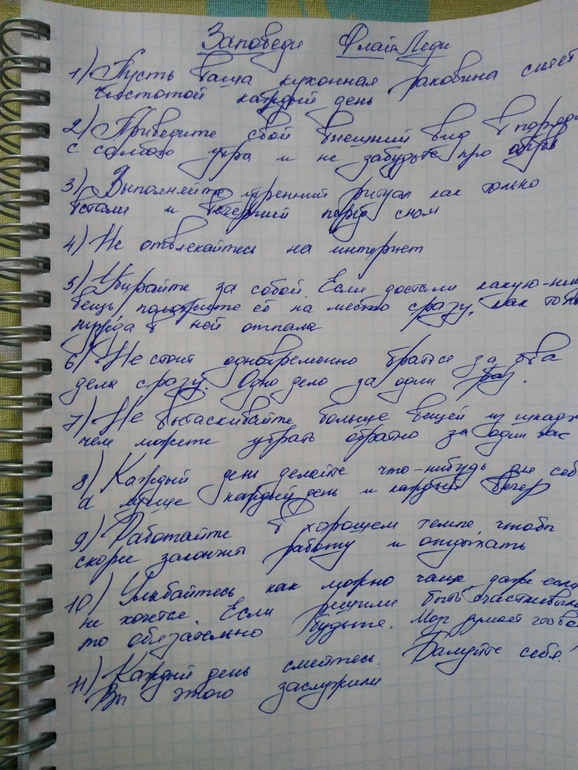 Заповеди ФлайЛеди
1) Пусть ваша кухонная раковина сияет
чистотой каждый день
2) Приведите свой внешний вид в порядо
с самого утра и не забудьте про обувь
3) Выполняйте утренний ритуал как только
встали и вечерний перед сном
4) Не отвлекайтесь на интернет
5) Убирайте за собой. Если достали какую-ниб
вещь положите её на место сразу, как то
нужда в ней отпала
6) Не стоит одновременно браться за два
дела сразу. Одно дело за один раз.
7) Не вытаскивайте больше вещей из шкаф
чем можете убрать обратно за один час
8) Каждый день делайте что-нибудь для себ
а лучше каждый день и каждый вечер
9) Работайте в хорошем темпе, чтобы
скорее закончить работу и отдыхать
10) Улыбайтесь как можно чаще даже если
не хочется. Если решили быть счастливым
то обязательно будьте.
11) Каждый день смейтесь. Балуйте себя!
Вы этого заслужили